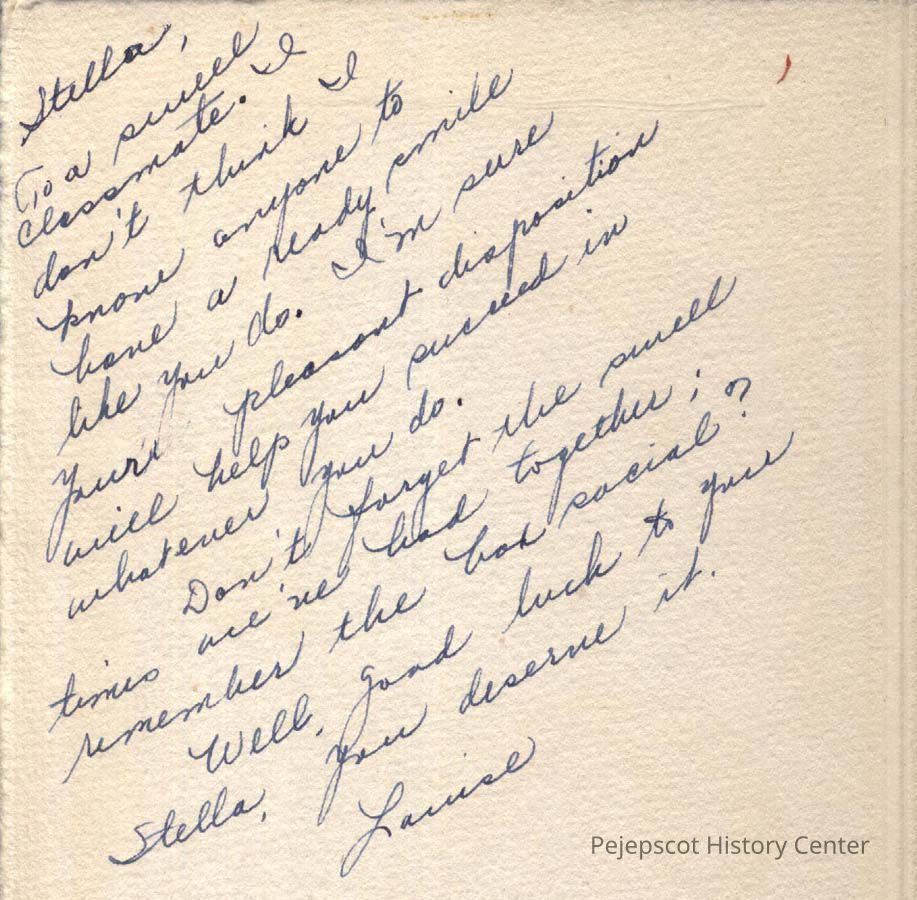 Stella,
To a swell
classmate. I
don't think I
know anyone to
have a ready smile
like you do. I'm sure
your pleasant disposition
will help you succeed in
whatever you do.
Don't forget the swell
times we've had together;
remember the box social?
Well, good luck to you
Stella, you deserve it.
Louise
Pejepscot History Center